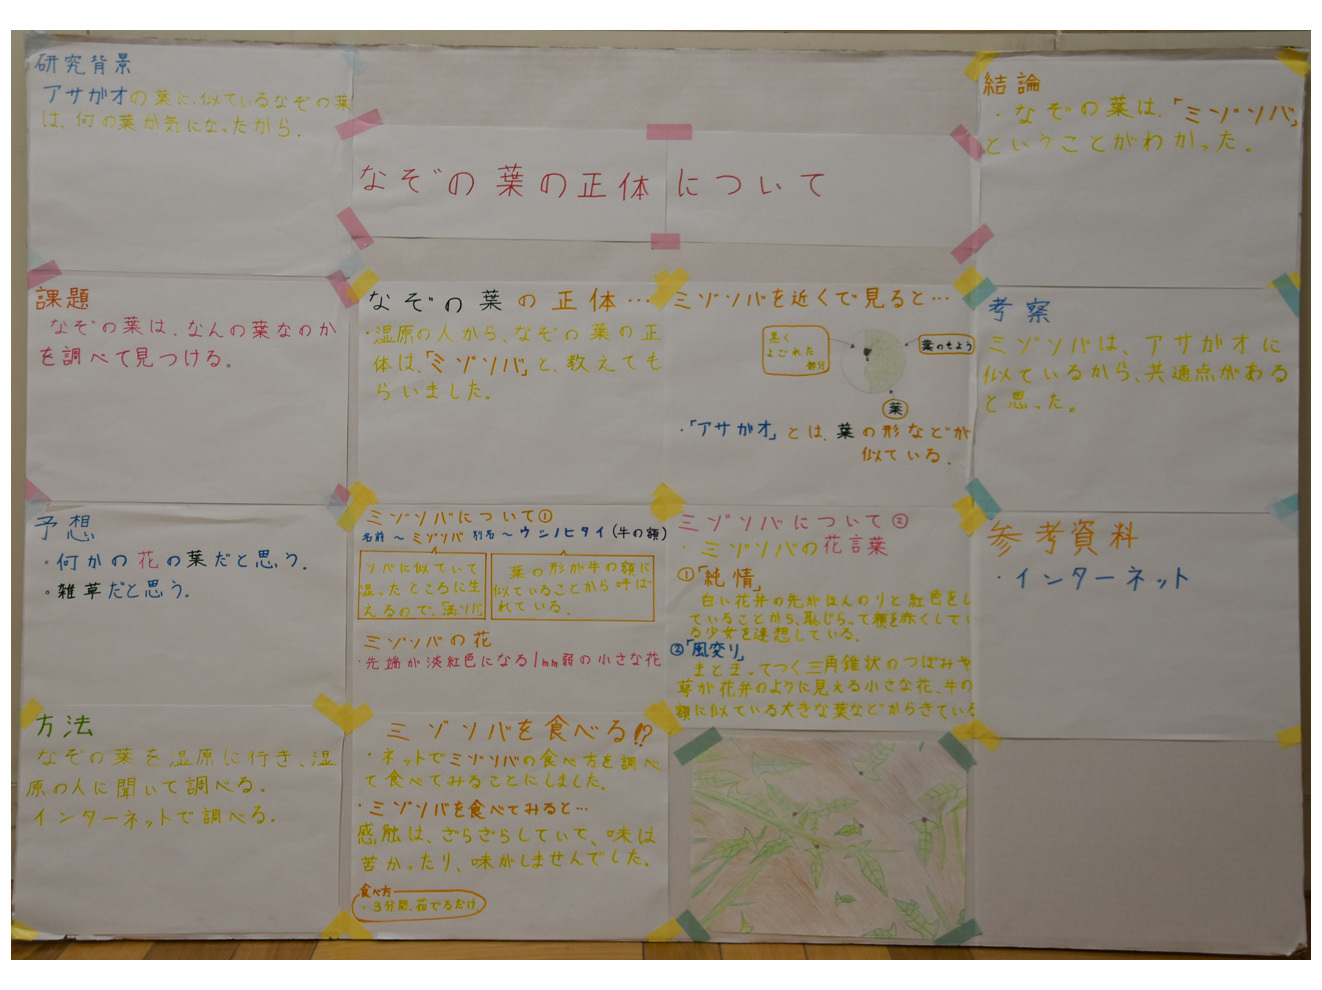 なぞの葉の正体について
研究背景
アサガオの葉に、似ているなぞの葉
は、何の葉か気になったから.
課題
なぞの葉は、なんの葉なのか
を調べて見つける。
予想
・何かの花の葉だと思う.
・雑草だと思う.
方法
なぞの葉を湿原に行き、湿
原の人に聞いて調べる.
インターネットで調べる.
なぞの葉の正体…
・湿原の人から、なぞの葉の正
体は、「ミゾソバ」と、教えても
らいました.
ミゾソバについて①
名前～ミゾソバ 別名～ウシノヒタイ(牛の額)
ソバに似ていて
湿ったところに生
えるので、溝ソバ
葉の形が牛の額に
似ていることから呼ば
れている.
ミゾソバの花
・先端が淡紅色になる1mm弱の小さな花
ミゾソバを食べる!?
・ネットでミゾソバの食べ方を調べ
て食べてみることにしました.
・ミゾソバを食べてみると…
感触は、ざらざらしていて、味は
苦かったり、味がしませんでした.
食べ方
・3分間、茹でるだけ
ミゾソバを近くで見ると…
黒く
よごれた
部分
葉のもよう
葉
・「アサガオ」とは、葉の形などが
似ている.
ミゾソバについて②
・ミゾソバの花言葉
①「純情」
白い花弁の先がほんのりと紅色をし
ていることから、恥じらって頬を赤くしてい
る少女を連想している.
②「風変り」
まとまってつく三角錐状のつぼみや
萼が花弁のように見える小さな花、牛の
額に似ている大きな葉などからきている
結論
・なぞの葉は、「ミゾソバ」
ということがわかった.
考察
ミゾソバは、アサガオに
似ているから、共通点がある
と思った.
参考資料
・インターネット